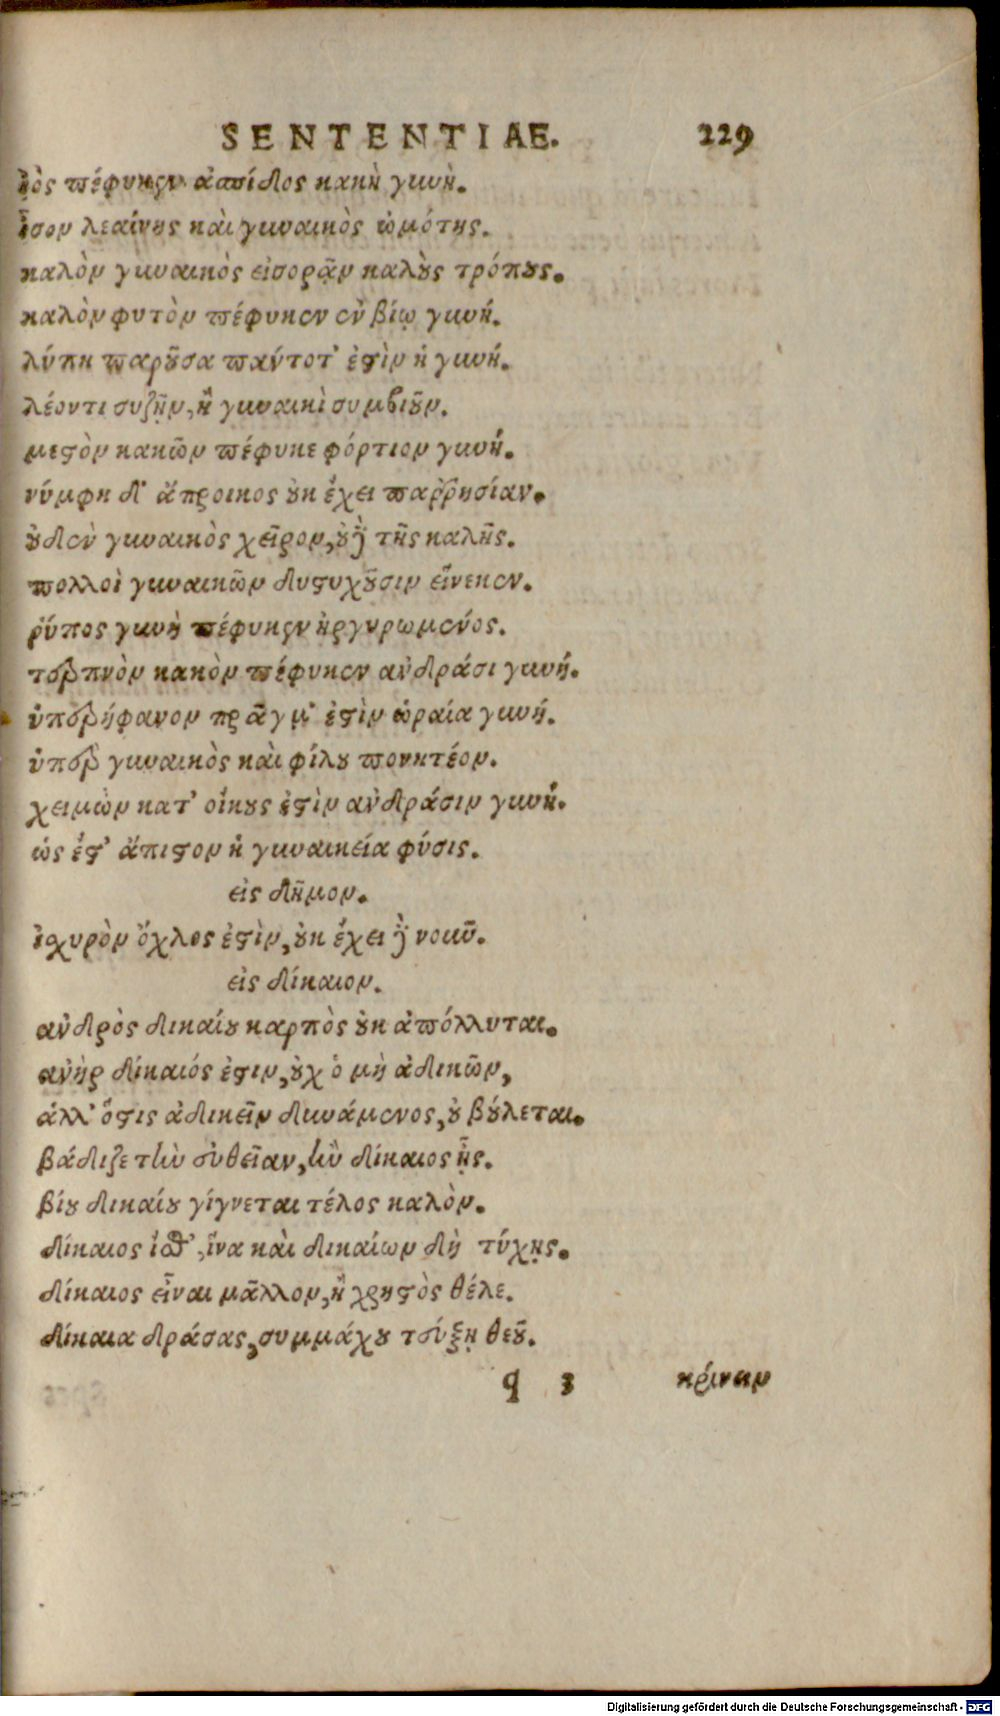 SENTENTIAE. 229
ἰὸς πέφυκεν ἀσπίδος κακὴ γυνὴ.
ἶσον λεαίνης καὶ γυναικὸς ὠμότης.
καλὸν γυναικὸς εἰσορᾷν καλοὺς τρόπους.
καλὸν φυτὸν πέφυκεν ἐν βίῳ γυνή.
λύπη παροῦσα πάντοτ' ἐστὶν ἡ γυνή.
λέοντι συζῇν, ἢ γυναικὶ συμβιοῦν.
μεστὸν κακῶν πέφυκε φόρτιον γυνή.
νύμφη δ' ἄπροικος οὐκ ἔχει παῤῥησίαν.
οὐδὲν γυναικὸς χεῖρον, οὐδὲ τῆς καλῆς.
πολλοὶ γυναικῶν δυστυχοῦσιν εἵνεκεν.
ῥύπος γυνὴ πέφυκεν ἠργυρωμένος.
τερπνὸν κακὸν πέφυκεν ἀνδράσι γυνή.
ὑπερήφανον πρᾶγμ' ἐστὶν ὡραία γυνή.
ὑπὲρ γυναικὸς καὶ φίλου πονητέον.
χειμὼν κατ' οἴκους ἐστὶν ἀνδράσιν γυνή.
ὡς ἔστ' ἄπιστον ἡ γυναικεία φύσις.
εἰς δῆμον.
ἰσχυρὸν ὄχλος ἐστὶν, οὐκ ἔχει δὲ νοῦν.
εἰς δίκαιον.
ἀνδρὸς δικαίου καρπὸς οὐκ ἀπόλλυται.
ἀνήρ δίκαιός ἐστιν, οὐχ ὁ μὴ ἀδικῶν,
ἀλλ' ὅστις ἀδικεῖν δυνάμενος, οὐ βούλεται.
βάδιζε τὴν εὐθεῖαν, ἣν δίκαιος ᾖς.
βίου δικαίου γίγνεται τέλος καλὸν.
δίκαιος ἴσθ', ἵνα καὶ δικαίων δὴ τύχῃς.
δίκαιος εἶναι μᾶλλον, ἢ χρηστὸς θέλε.
δίκαια δράσας, συμμάχου τεύξῃ θεοῦ.
q 3 κρίνειν
Digitalisierung gefördert durch die Deutsche Forschungsgemeinschaft - DFG